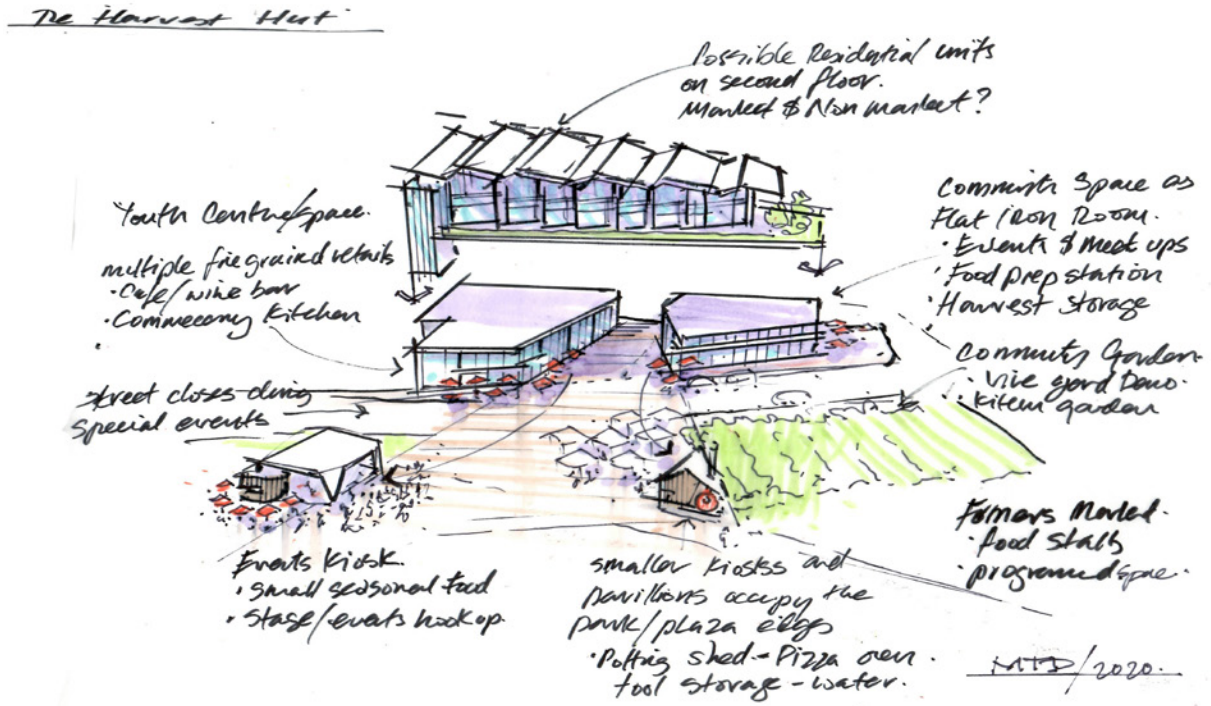 The Harvest Hut
Possible Residential units
on second floor.
Market & Non market?
Youth Centre/space.
multiple fine grained retails
• Cafe/wine bar
• Commecary Kitchen
street closes during
special events
Community Space as
Flat iron Room.
• Events & meet ups
• Food prep station
• Harvest Storage
Community Garden.
• Vine yard Demo.
• Kitchen garden
Farmers Market.
• food stalls
• programed space.
Events Kiosk.
• small seasonal food
• Stage/events hook up.
smaller Kiosks and
pavillions occupy the
park/plaza edges
• Potting shed - Pizza oven.
tool storage - water.
MTD/2020.